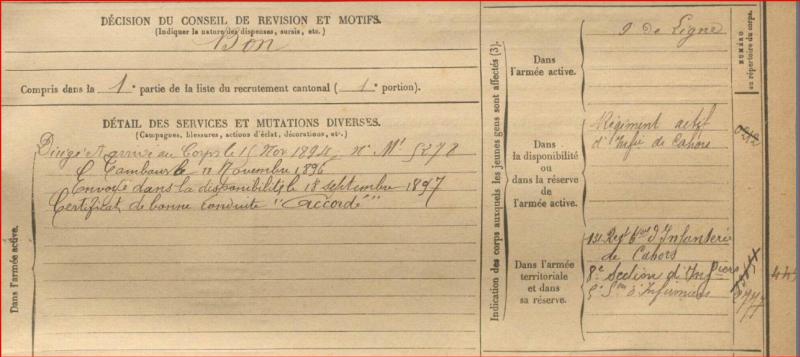 DÉCISION DU CONSEIL DE REVISION ET MOTIFS.
(Indiquer la nature des dispenses, sursis, etc.)
Bon
Compris dans la 1e partie de la liste du recrutement cantonal ( 1e portion).
DÉTAIL DES SERVICES ET MUTATIONS DIVERSES.
(Campagnes, blessures, actions d'éclat, décorations, etc.)
Dans l'armée active.
Dirigé et arrivé au Corps le 15 Nov 1894, n° Ml 5272
Tambour le 11 Novembre 1896
Envoyé dans la disponibilité le 18 septembre 1897
Certificat de bonne conduite "accordé"
Indication des corps auxquels les jeunes gens sont affectés (3).
NUMÉRO
au répertoire du corps.
Dans
l'armée active.
9 de Ligne
Dans
la disponibilité
ou
dans la réserve
de
l'armée active.
Régiment actif
d'Infie de Cahors
Dans l'armée
territoriale
et dans
sa réserve.
131 Regt d'Infanterie
de Cahors
8e Section d'Infiers
5e Son d'Infirmiers